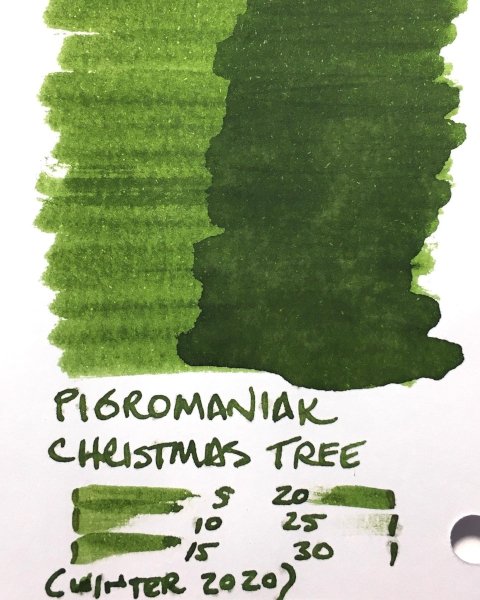 PIGROMANIAK
CHRISTMAS TREE
5 20
10 25
15 30
(WINTER 2020)